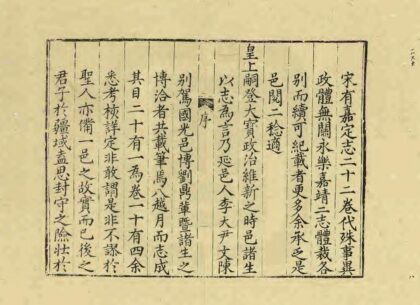 宋有嘉定志二十二卷代殊事異
政體無關永樂嘉靖二志體裁各
別而續可紀載者更多余承乏是
邑閱二稔適
皇上嗣登大寶政治維新之時邑諸生
以志為言乃延邑人李大尹文陳
序
別駕國光邑博劉鼎輩暨諸生之
博洽者共載筆焉八越月而志成
其目二十有一為卷一十有四余
悉考挍詳定非敢謂是非不謬於
聖人亦備一邑之故實而已後之
君子於疆域盍思封守之險壯於